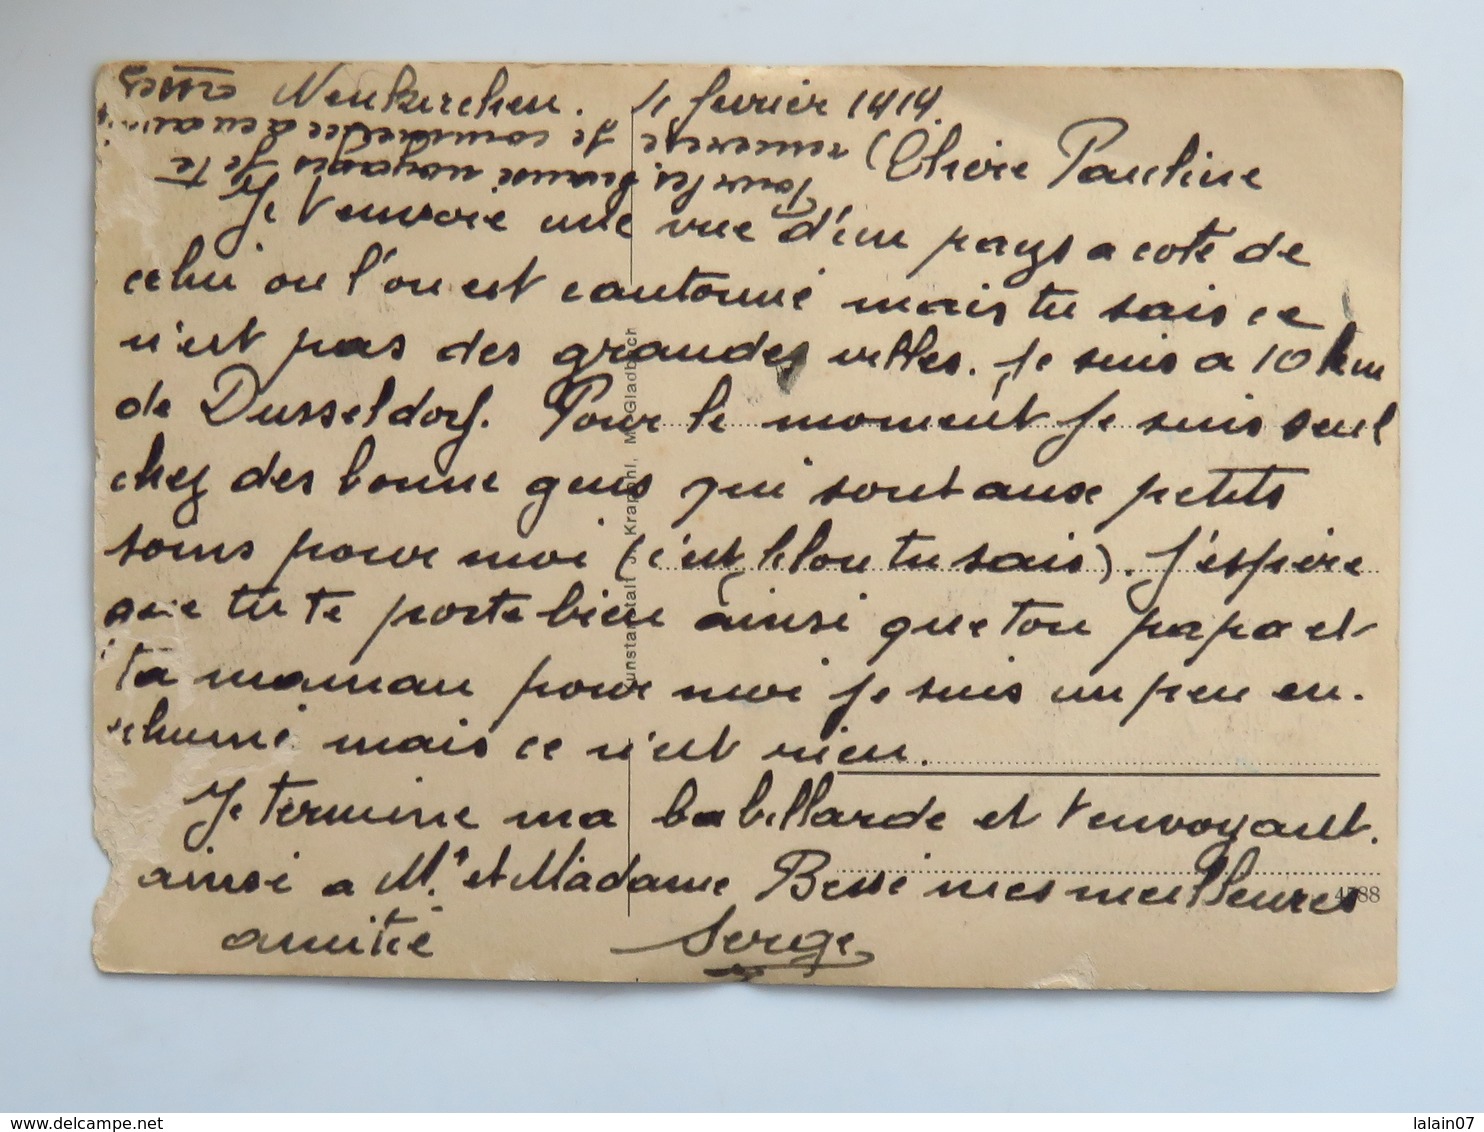 Neukerchen. 4 fevrier 1919.
Chère Pauline
Je t'envoie une vue d'un pays a coté de
celui ou l'on est cantonné mais tu sais ce
n'est pas des grandes villes. Je suis a 10 km
de Dusseldorf. Pour le moment je suis seul
chez des bonne gens qui sont aux petits
soins pour moi (c'est filou tu sais). J'espère
que tu te porte bien ainsi que ton papa et
ta maman pour moi je suis un peu en-
rhumé mais ce n'est rien.
Je termine ma babillarde et t'envoyant.
ainsi a Mr et Madame Bessé mes meilleures
amitié
Serge
Pour les je te
remercie je commence a en avoir
assez
Kunstanstalt J. Krapohl, M. Gladbach
4588
lalain07